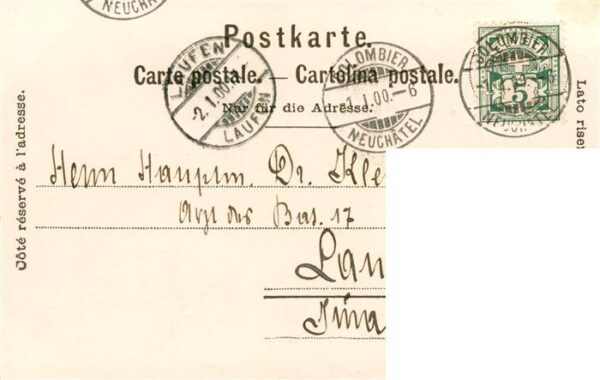 NEUCHÂTEL
Postkarte.
Carte postale. — Cartolina postale.
Nur für die Adresse.
LAUFEN
-2.1.00.
LAUFEN
COLOMBIER
1.1.00.-6
NEUCHÂTEL
COLOMBIER
5
NEUCHÂTEL
Côté réservé à l'adresse.
Lato riser
Herrn Hauptm. Dr.
Arzt des Bat. 17
Lau
Jura